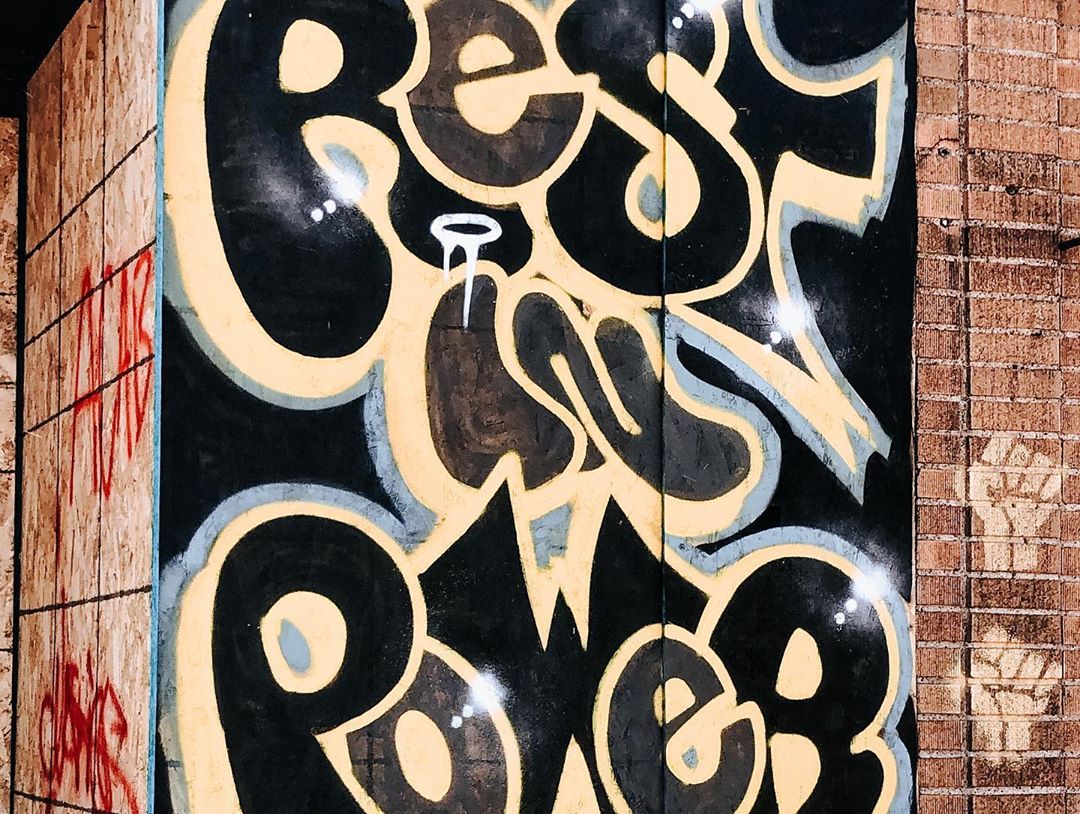 ReST
IN
PoWeR